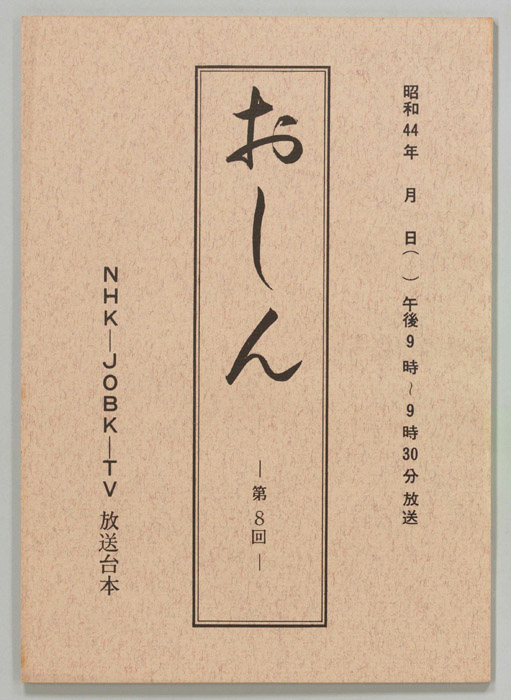 昭和44年　月　日（　）午後9時～9時30分放送
おしん
―第8回―
NHK―JOBK―TV 放送台本